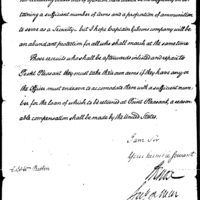 taining a sufficient number of arms and a proportion of ammunition
to serve as a Security, but I hope Captain Gibsons company will be
an abundant protection for all who shall march at the same time
Those recruits who shall be afterwards inlisted and repair to
Point Pleasant, they must take their own arms if they have any or
the Officer must endeavor to accomodate them with a sufficient num-
ber for the loan of which to be returned at Point Pleasant, a reason-
able compensation shall be made by the United States.
I am Sir
Your humble Servant
HKnox
Sec'y of War
Preston